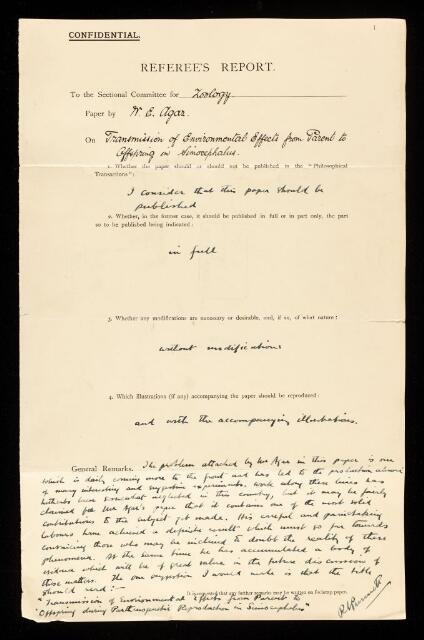 CONFIDENTIAL.
1
REFEREE'S REPORT.
To the Sectional Committee for Zoology
Paper by W. E. Agar.
On Transmission of Environmental Effects from Parent to
Offspring in Simocephalus.
1. Whether the paper should or should not be published in the "Philosophical
Transactions":
I consider that this paper should be
published
2. Whether, in the former case, it should be published in full or in part only, the part
so to be published being indicated:
in full
3. Whether any modifications are necessary or desirable, and, if so, of what nature:
without modifications
4. Which illustrations (if any) accompanying the paper should be reproduced:
and with the accompanying illustrations.
General Remarks. The problem attacked by Mr Agar in this paper is one
which is daily coming more to the front and has led to the production abroad
of many interesting and suggestive experiments. Work along these lines has
hitherto been somewhat neglected in this country, but it may be fairly
claimed for Mr Agar's paper that it contains one of the most solid
contributions to the subject yet made. His careful and painstaking
labours have achieved a definite result which must go far towards
convincing those who may be inclined to doubt the reality of these
phenomena. At the same time he has accumulated a body of
evidence which will be of great value in the future discussion of
these matters. The one suggestion I would make is that the title
should read:—
It is requested that any further remarks may be written on foolscap paper.
"Transmission of Environmental Effects from Parent to
Offspring during Parthenogenetic Reproduction in Simocephalus"